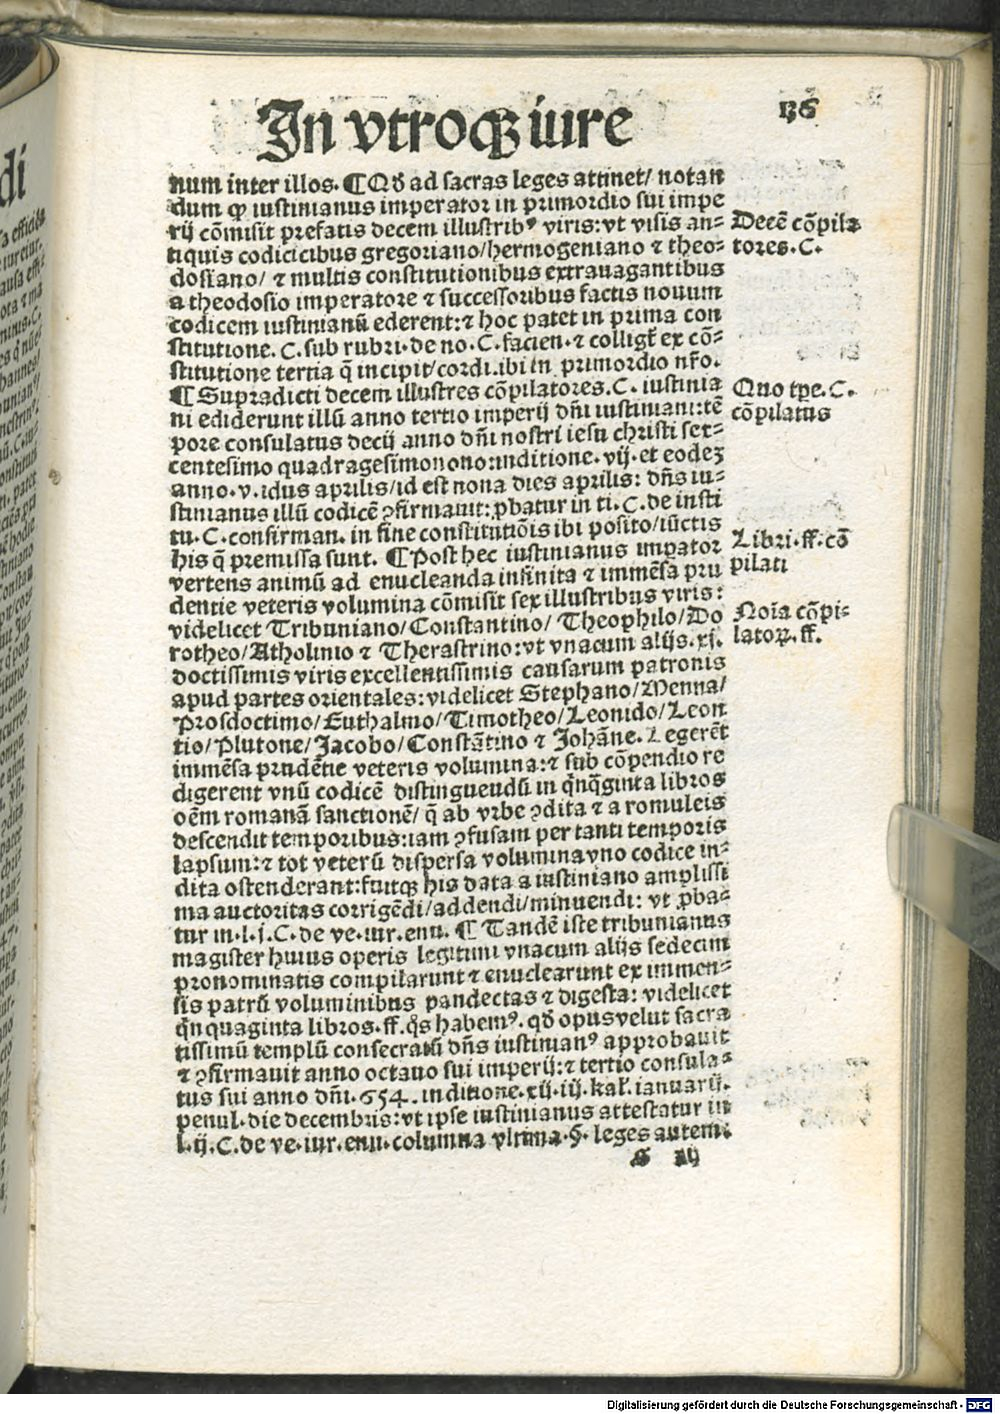 In vtroqꝫ iure
136
num inter illos. ¶ Qď ad sacras leges attinet/ notan
dum ꝙ iustinianus imperator in primordio sui impe
rij cōmisit prefatis decem illustribꝰ viris: vt visis an⸗
tiquis codicicibus gregoriano/hermogeniano ⁊ theo⸗
dosiano/ ⁊ multis constitutionibus extrauagantibus
a theodosio imperatore ⁊ successoribus factis nouum
codicem iustinianū ederent: ⁊ hoc patet in prima con
stitutione. C. sub rubri. de no. C. facien. ⁊ colligt̄ ex cō⸗
stitutione tertia q̄ incipit/cordi. ibi in primordio nr̄o.
¶ Supradicti decem illustres cōpilatores. C. iustinia
ni ediderunt illū anno tertio imperij dn̄i iustiniani: tē
pore consulatus decij anno dn̄i nostri iesu christi sex⸗
centesimo quadragesimonono: inditione. vij. et eodeꝫ
anno. v. idus aprilis/id est nona dies aprilis: dn̄s iu⸗
stinianus illū codicē ꝯfirmauit: ꝓbatur in ti. C. de insti
tu. C. confirman. in fine constitutiōis ibi posito/iūctis
his q̄ premissa sunt. ¶ Post hec iustinianus impator
vertens animū ad enucleanda infinita ⁊ immēsa pru
dentie veteris volumina cōmisit sex illustribus viris:
videlicet Tribuniano/Constantino/Theophilo/Do
rotheo/Atholinio ⁊ Therastrino: vt vnacum alijs. xj.
doctissimis viris excellentissimis causarum patronis
apud partes orientales: videlicet Stephano/Menna/
Prosdoctimo/Euthalmo/Timotheo/Leonido/Leon
tio/Plutone/Jacobo/Constātino ⁊ Johāne. Legerēt
immēsa prudētie veteris volumina: ⁊ sub cōpendio re
digerent vnū codicē distinguendū in qn̄qginta libros
oēm romanā sanctionē/ q̄ ab vrbe ꝯdita ⁊ a romuleis
descendit temporibus: iam ꝯfusam per tanti temporis
lapsum: ⁊ tot veterū dispersa volumina vno codice in⸗
dita ostenderant: fuitqꝫ his data a iustiniano amplissi
ma auctoritas corrigēdi/addendi/minuendi: vt ꝓba⸗
tur in. l. j. C. de ve. iur. enu. ¶ Tandē iste tribunianus
magister huius operis legitimi vnacum alijs sedecim
pronominatis compilarunt ⁊ enuclearunt ex immen⸗
sis patrū voluminibus pandectas ⁊ digesta: videlicet
qn̄quaginta libros. ff. qs habemꝰ. qď opus velut sacra
tissimū templū consecratū dn̄s iustinianꝰ approbauit
⁊ ꝯfirmauit anno octauo sui imperij: ⁊ tertio consula⸗
tus sui anno dn̄i. 654. inditione. xij. iij. kal̄. ianuarij.
penul. die decembris: vt ipse iustinianus attestatur in
l. ij. C. de ve. iur. enu. columna vltima. §. leges autem.
Decē cōpila
tores. C.
Quo tpe. C.
cōpilatus
Libri. ff. cō
pilati
Noīa cōpi⸗
latoꝝ. ff.
Digitalisierung gefördert durch die Deutsche Forschungsgemeinschaft - DFG